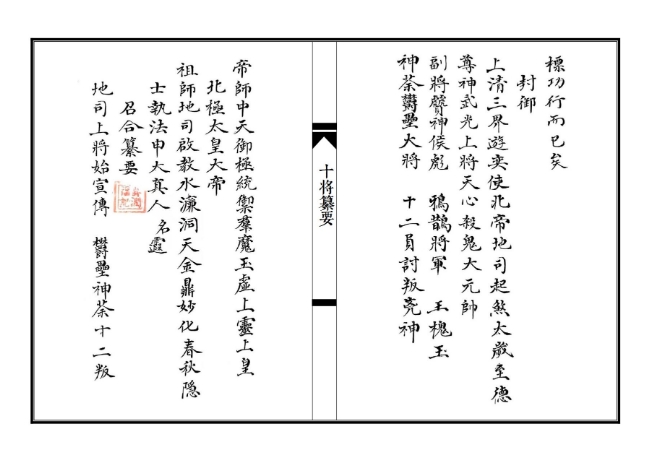 標功行而已矣
封御
上清三界遊奕使北帝地司起煞太歲至德
尊神武光上將天心殺鬼大元帥
副將蔭神侯彪　鴉鵲將軍　王槐玉
神荼欝壘大將　十二員討叛亮神
十将纂要
帝師中天御極統禦羣魔玉虛上靈上皇
北極太皇大帝
祖師地司啟教水濂洞天金鼎妙化春秋隱
士執法申大真人名霆
召合纂要
地司上將始宣傳　欝壘神荼十二叛